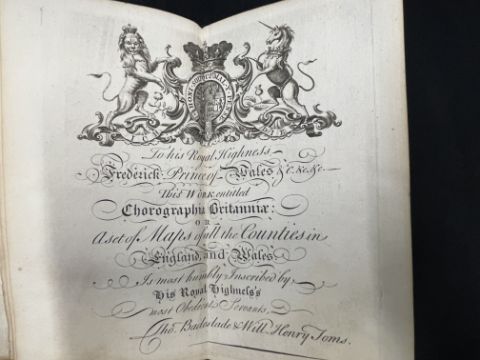 HONI SOIT QUI MAL Y PENSE
To his Royal Highness
Frederick Prince of Wales &c. &c. &c.
This Work entitled
Chorographia Britanniæ:
OR
A set of Maps of all the Counties in
England, and Wales
Is most humbly Inscribed by
His Royal Highness's
most Obedient Servants,
Tho. Badeslade & Will. Henry Toms.